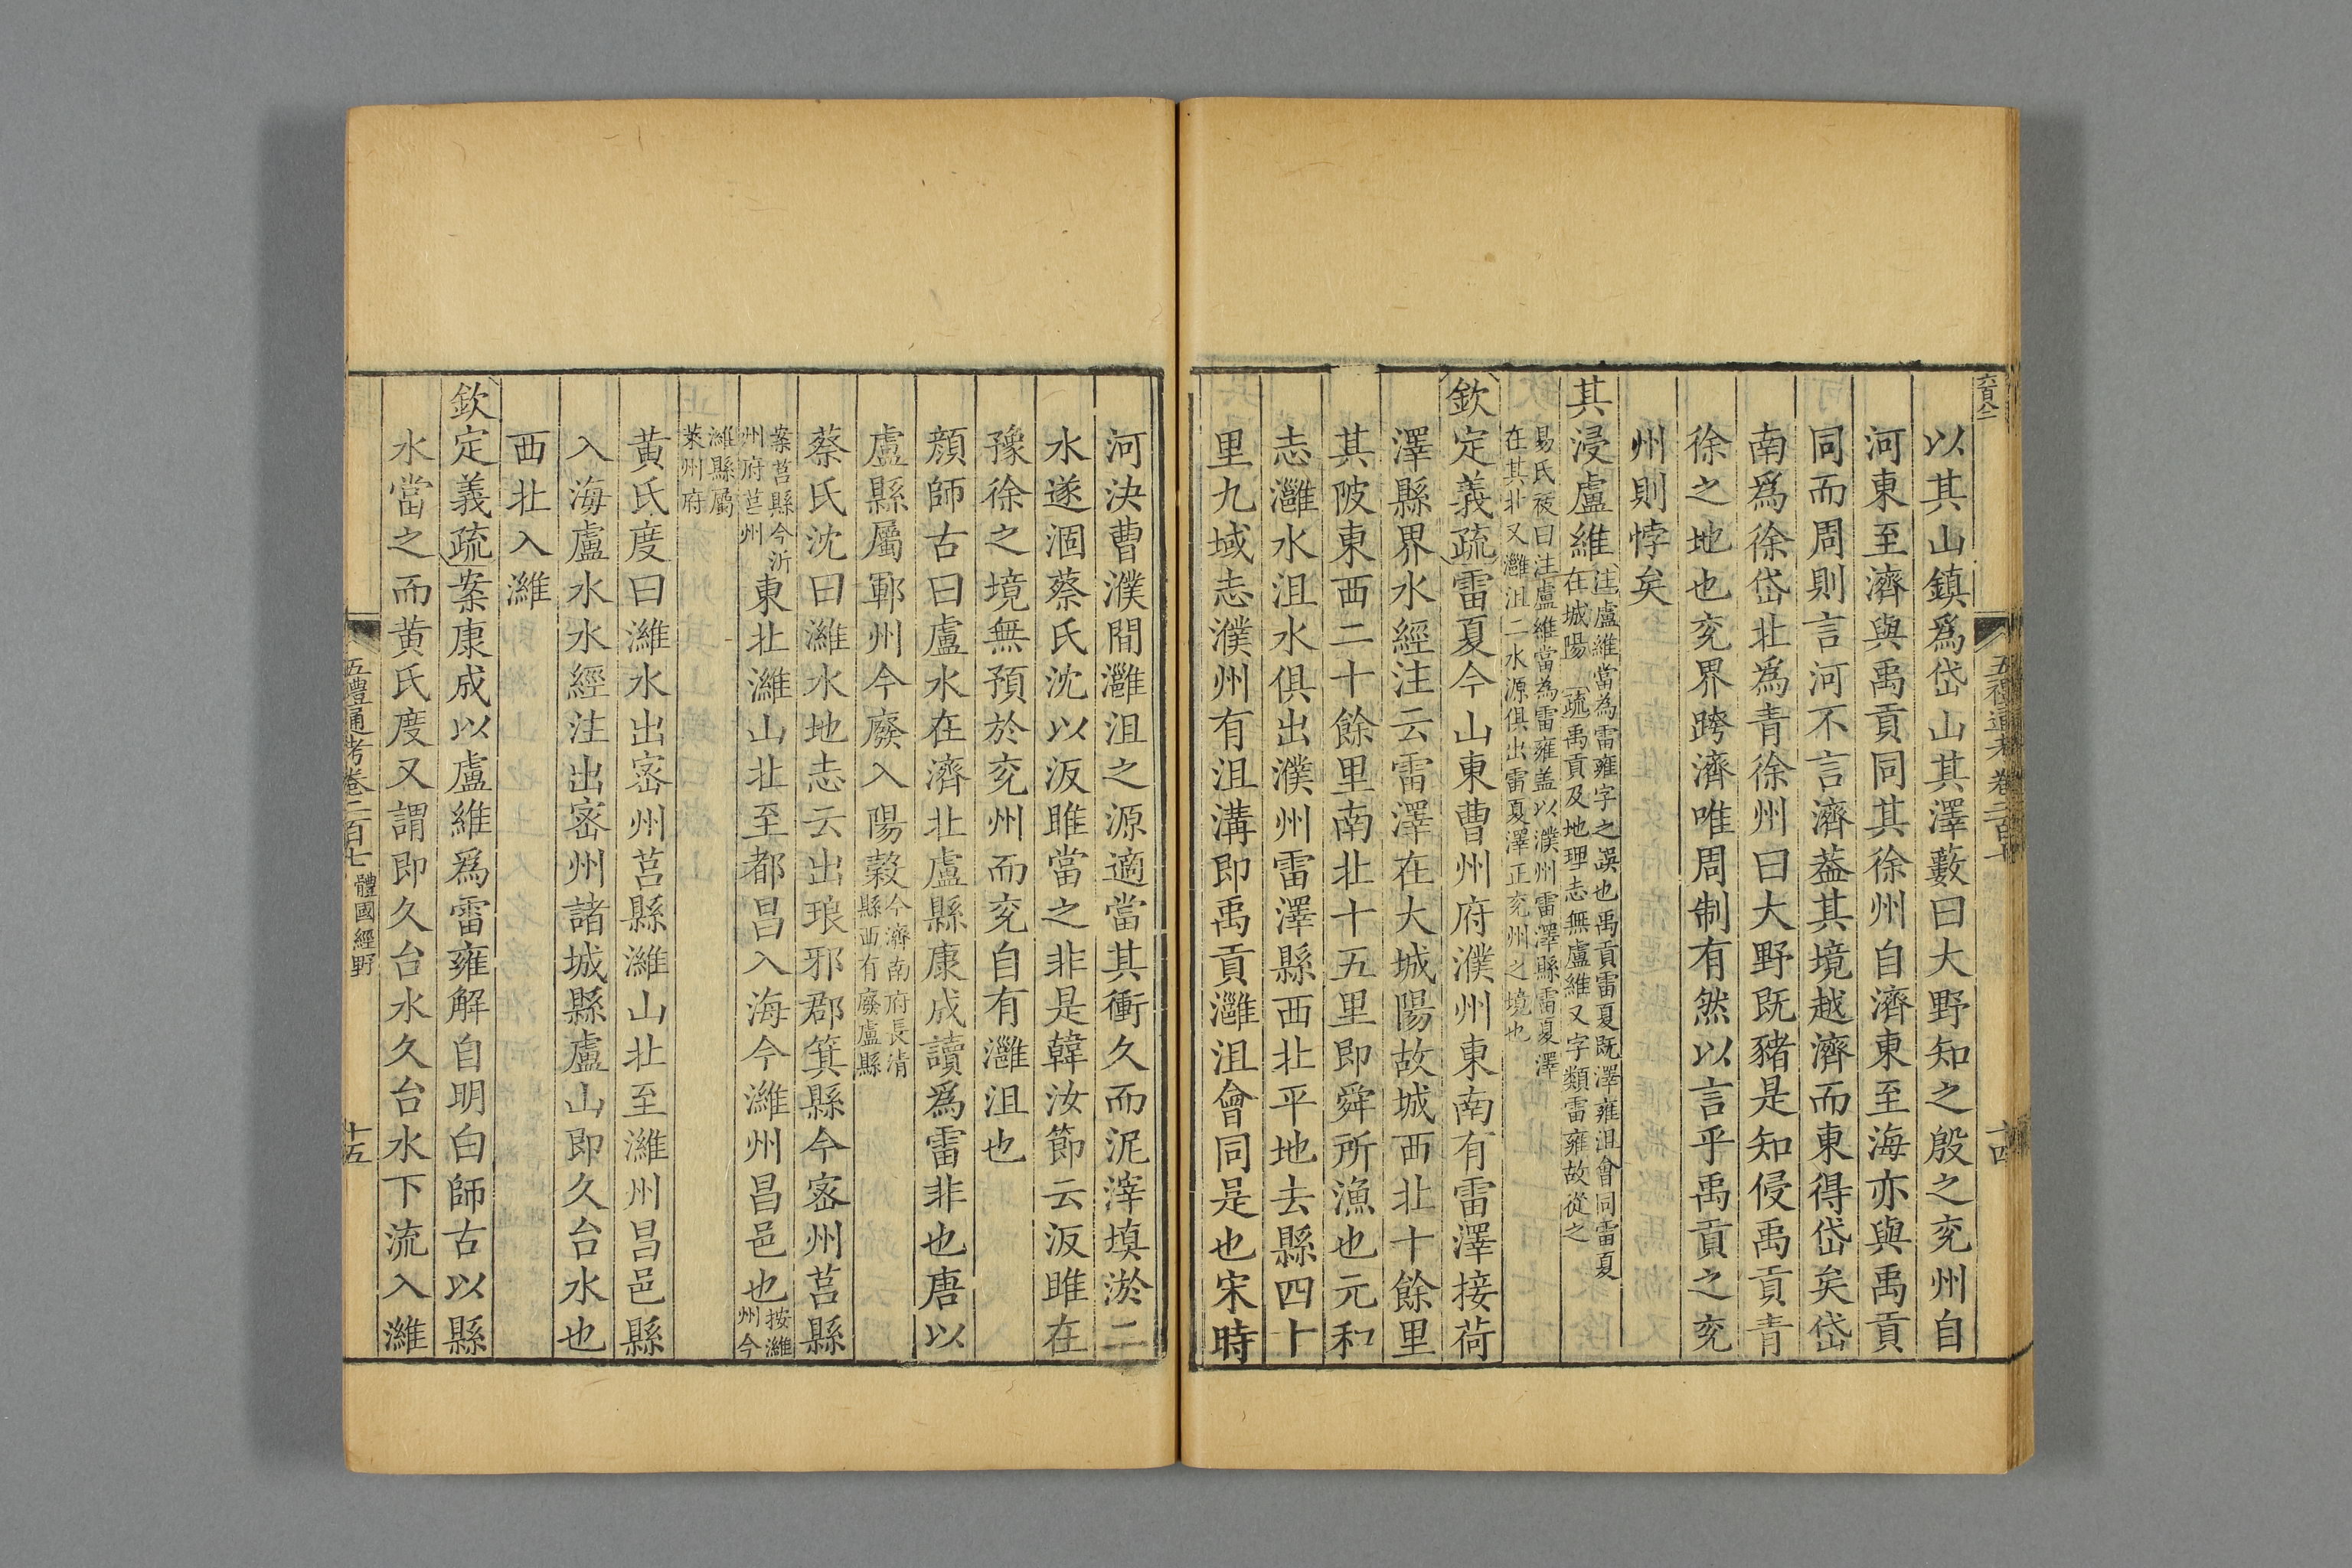 六百八二
以其山鎮爲岱山其澤藪曰大野知之殷之兖州自
河東至濟與禹貢同其徐州自濟東至海亦與禹貢
同而周則言河不言濟葢其境越濟而東得岱矣岱
南爲徐岱北爲青徐州曰大野既豬是知侵禹貢青
徐之地也兖界跨濟唯周制有然以言乎禹貢之兖
州則悖矣
其浸盧維
注盧維當為雷雍字之誤也禹貢雷夏既澤雍沮會同雷夏
在城陽 疏禹貢及地理志無盧維又字類雷雍故從之
易氏祓曰注盧維當為雷雍盖以濮州雷澤縣雷夏澤
在其北又灉沮二水源俱出雷夏澤正兖州之境也
欽定義疏雷夏今山東曹州府濮州東南有雷澤接荷
澤縣界水經注云雷澤在大城陽故城西北十餘里
其陂東西二十餘里南北十五里即舜所漁也元和
志灉水沮水俱出濮州雷澤縣西北平地去縣四十
里九域志濮州有沮溝即禹貢灉沮會同是也宋時
河決曹濮間灉沮之源適當其衝久而泥滓填淤二
水遂涸蔡氏沈以汳雎當之非是韓汝節云汳雎在
豫徐之境無預於兖州而兖自有灉沮也
顔師古曰盧水在濟北盧縣康成讀爲雷非也唐以
盧縣屬鄆州今廢入陽穀
今濟南府長清
縣西有廢盧縣
蔡氏沈曰濰水地志云出琅邪郡箕縣今密州莒縣
案莒縣今沂
州府莒州
東北濰山北至都昌入海今濰州昌邑也
按濰
州今
濰縣屬
萊州府
黄氏度曰濰水出密州莒縣濰山北至濰州昌邑縣
入海盧水水經注出密州諸城縣盧山即久台水也
西北入濰
欽定義疏案康成以盧維爲雷雍解自明白師古以縣
水當之而黄氏度又謂即久台水久台水下流入濰
五禮通考卷二百七 體國經野
十五